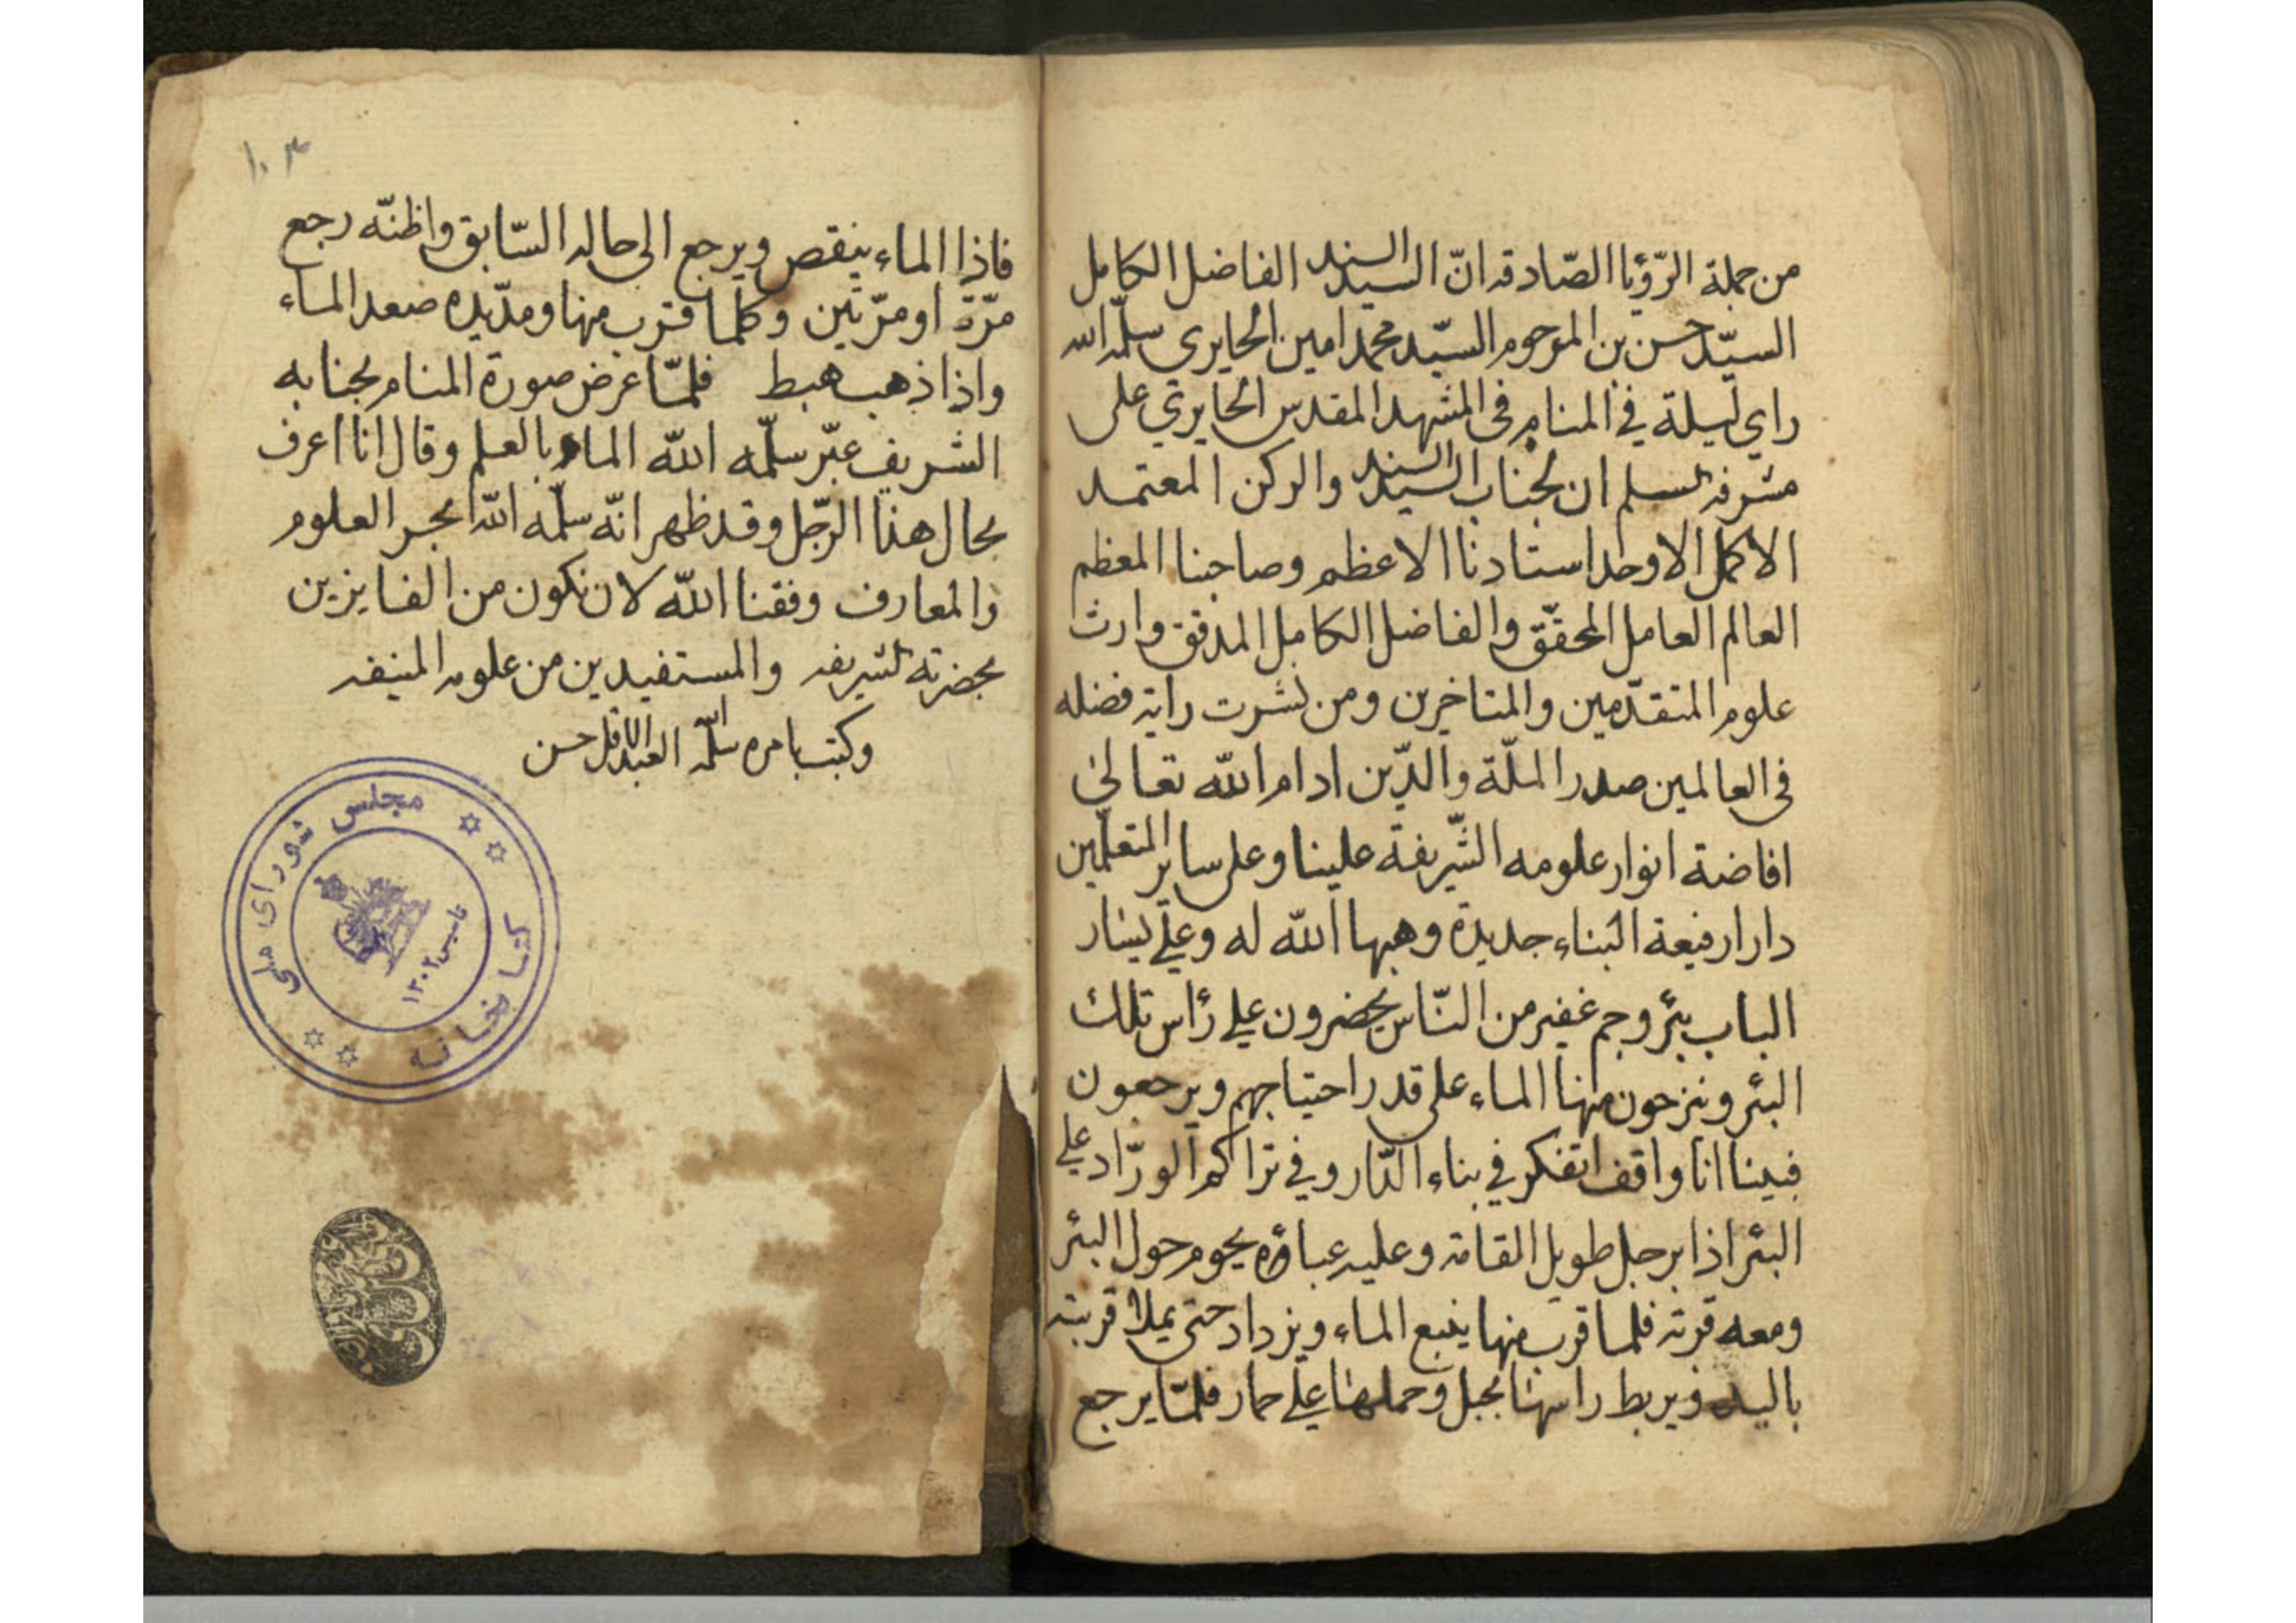 من جملة الرّؤيا الصّادقه انّ السيد السند الفاضل الكامل
السيّد حسن بن المرحوم السيّد محمد امين الحايرى سلّمه الله
راي ليلة في المنام فى المشهد المقدس الحايري على
مشرفه السلم ان لجناب السيد السند والركن المعتمد
الاكمل الاوحد استادنا الاعظم وصاحبنا المعظم
العالم العامل المحقّق والفاضل الكامل المدقق وارث
علوم المتقدّمين والمتاخرين ومن نشرت راية فضله
فى العالمين صدر الملّة والدّين ادام الله تعالى
افاضة انوار علومه الشّريفة علينا وعلى ساير المتعلّمين
دارا رفيعة البناء جديدة وهبها الله له وعلي يسار
الباب بئر وجم غفير من النّاس يحضرون علي رأس تلك
البئر وينزحون منها الماء على قدر احتياجهم ويرجعون
فبينا انا واقف اتفكر في بناء الدّار وفي تراكم الورّاد علي
البئر اذا برجل طويل القامة وعليه عباؤه يحوم حول البئر
ومعه قربة فلما قرب منها ينبع الماء ويزداد حتى يملا قربته
باليد ويربط راسها بحبل وحملها علي حمار فلمّا يرجع
١٠٣
فاذا الماء ينقص ويرجع الى حاله السّابق واظنّه رجع
مرّة او مرّتين وكلما قرب منها ومدّ يده صعد الماء
واذا ذهب هبط فلمّا عرض صورة المنام بجنابه
الشريف عبّر سلّمه الله الماء بالعلم وقال انا اعرف
بحال هذا الرّجل وقد ظهر انّه سلّمه الله بحر العلوم
والمعارف وفقنا الله لان نكون من الفايزين
بحضرته الشريفه والمستفيدين من علومه المنيفه
وكتب بامره سلّمه الله العبد الاقل حسن
كتابخانه مجلس شوراى ملى
تاسيس ١٣٠٢